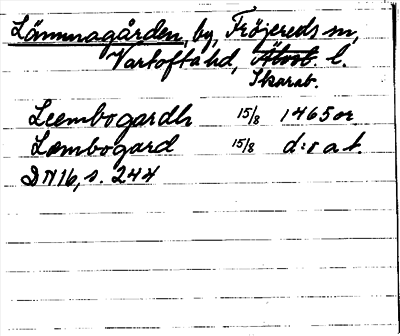 Lämmagården, by, Fröjereds sn,
Vartofta hd, Älvsb. l.
Skarab.
Leembogardh 15/8 1465 or
Læmbogard 15/8 d:o a t.
DN 16, s. 244